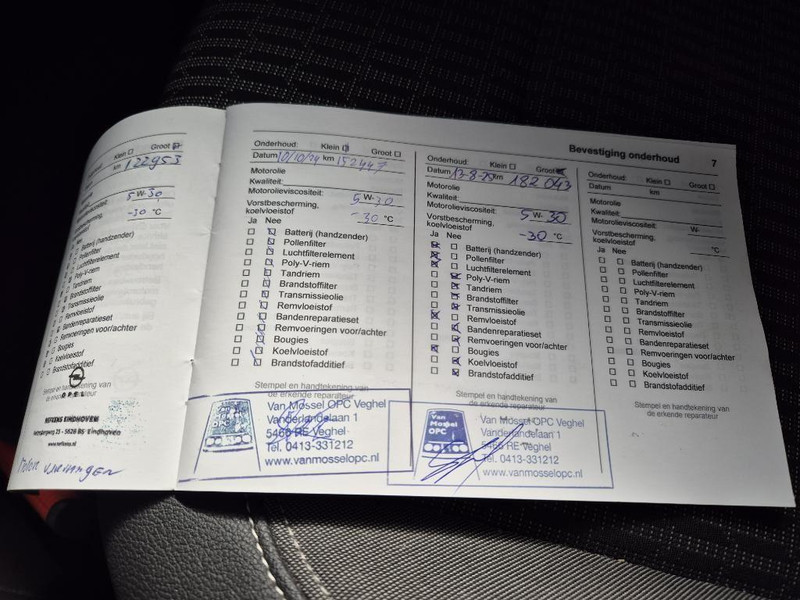 Bevestiging onderhoud 7
Klein Groot
km 122953
5 W-30
-30 °C
Batterij (handzender)
Pollenfilter
Luchtfilterelement
Poly-V-riem
Tandriem
Brandstoffilter
Transmissieolie
Remvloeistof
Bandenreparatieset
Remvoeringen voor/achter
Bougies
Koelvloeistof
Brandstofadditief
Stempel en handtekening van
de erkende reparateur
OPEL
REFERS EINDHOVEN
5626 BS Eindhoven
Onderhoud: Klein Groot
Datum 10/10/24 km 152447
Motorolie
Kwaliteit:
Motorolieviscositeit: 5 W-30
Vorstbescherming,
koelvloeistof -30 °C
Ja Nee
Batterij (handzender)
Pollenfilter
Luchtfilterelement
Poly-V-riem
Tandriem
Brandstoffilter
Transmissieolie
Remvloeistof
Bandenreparatieset
Remvoeringen voor/achter
Bougies
Koelvloeistof
Brandstofadditief
Stempel en handtekening van
de erkende reparateur
Van Mossel OPC Veghel
Vanderlandelaan 1
5466 RE Veghel
Tel. 0413-331212
www.vanmosselopc.nl
Onderhoud: Klein Groot
Datum 13-8-25 km 182043
Motorolie
Kwaliteit:
Motorolieviscositeit: 5 W- 30
Vorstbescherming,
koelvloeistof -30 °C
Ja Nee
Batterij (handzender)
Pollenfilter
Luchtfilterelement
Poly-V-riem
Tandriem
Brandstoffilter
Transmissieolie
Remvloeistof
Bandenreparatieset
Remvoeringen voor/achter
Bougies
Koelvloeistof
Brandstofadditief
Stempel en handtekening van
de erkende reparateur
Van Mossel OPC
Van Mossel OPC Veghel
Vanderlandelaan 1
5466 RE Veghel
Tel. 0413-331212
www.vanmosselopc.nl
Onderhoud: Klein Groot
Datum km
Motorolie
Kwaliteit:
Motorolieviscositeit: W-
Vorstbescherming,
koelvloeistof °C
Ja Nee
Batterij (handzender)
Pollenfilter
Luchtfilterelement
Poly-V-riem
Tandriem
Brandstoffilter
Transmissieolie
Remvloeistof
Bandenreparatieset
Remvoeringen voor/achter
Bougies
Koelvloeistof
Brandstofadditief
Stempel en handtekening van
de erkende reparateur